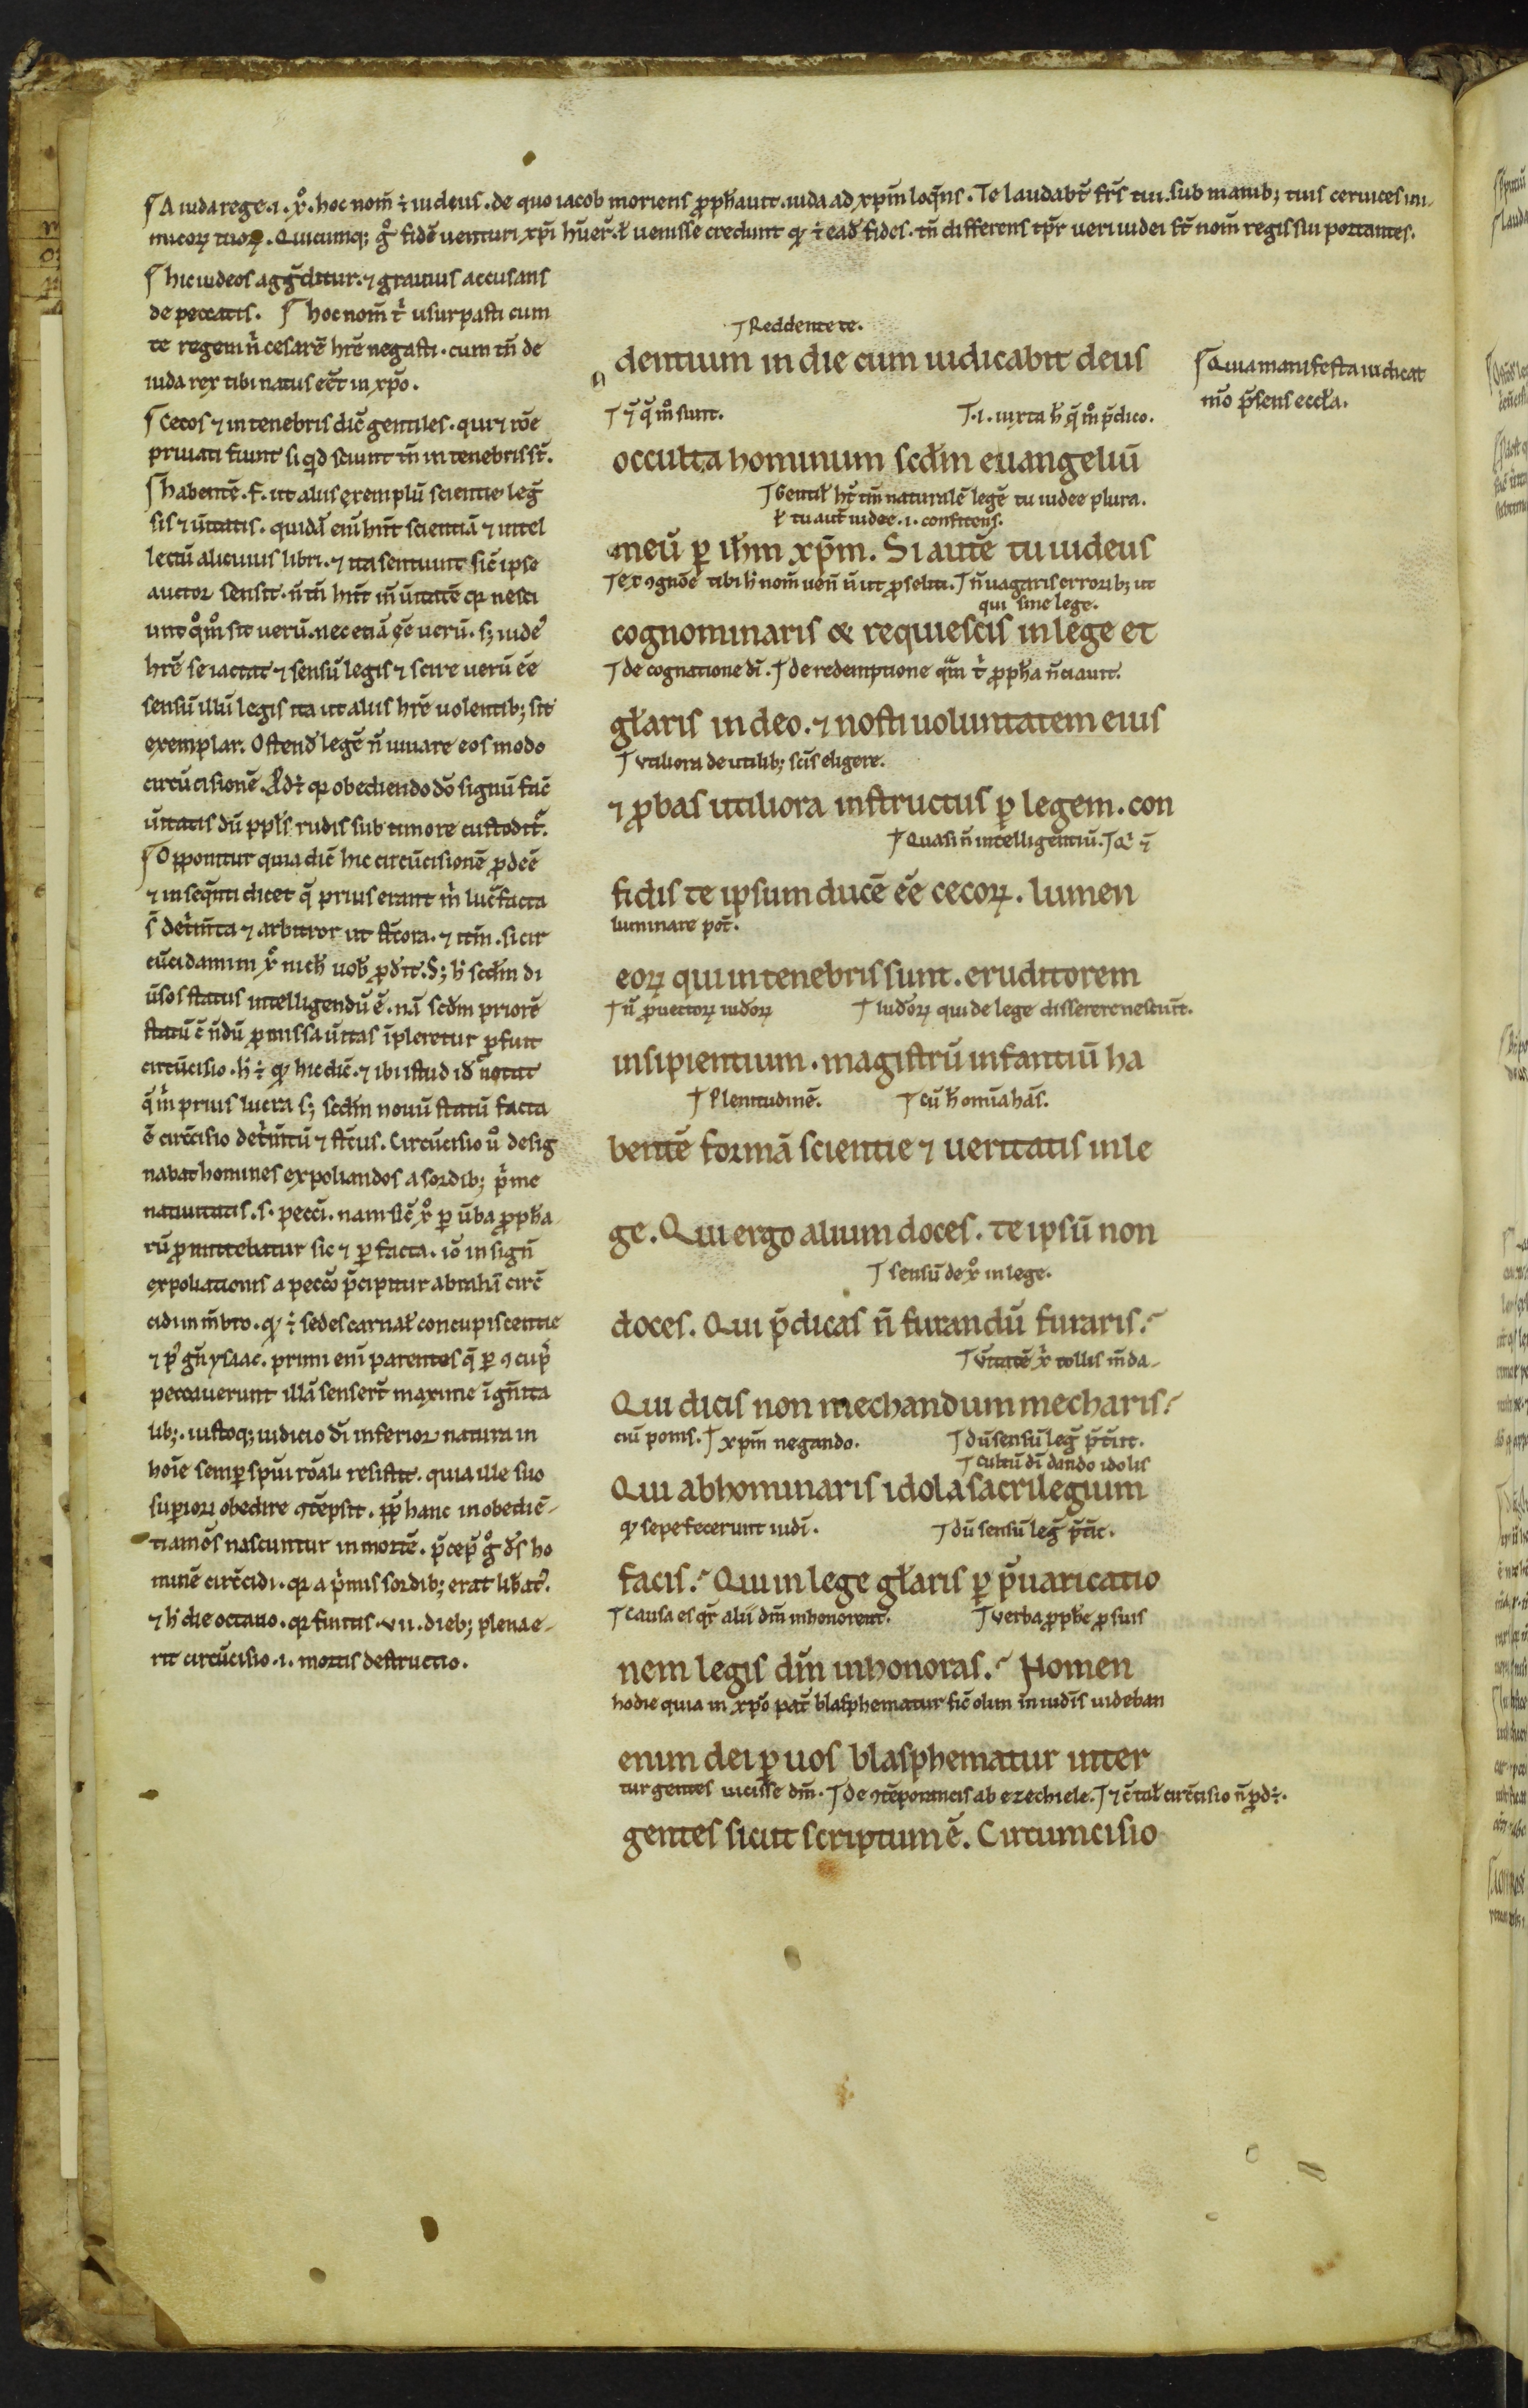 A iuda rege .i. xp̄o. hoc nom̄ ē iudeus. de quo iacob moriens ꝓph̄auit. iuda ad xpm̄ loq̄ns. Te laudabt̄ fr̄s tui. sub manib; tuis ceruices ini
micoꝝ tuoꝝ. Quicumq; gͦ fidē uenturi xp̄i hūer̄. ł uenisse credunt ꝙ ē eađ fides. tn̄ differens tp̄r ueri iudei st̄ nom̄ regis sui portantes.
hic iudeos aggͣditur. ⁊ grauius accusans
de peccatis. hoc nom̄ tͥ usurpasti cum
te regem nͥ cesarē hr̄e negasti. cum tn̄ de
iuda rex tibi natus eēt in xp̄o.
Cecos ⁊ in tenebris dic̄ gentiles. qui ⁊ rōe
priuati fiunt si qͥd sciunt tn̄ in tenebris st̄.
habentē .f. ut aliis exemplū scientie leḡ
sis ⁊ ūitatis. quidā enī hn̄t scientiā ⁊ intel
lectū alicuius libri. ⁊ ita sentiunt sic̄ ipse
auctor sensit. n̄ tn̄ hn̄t in̄ ūitatē qꝛ nesci
unt qͦmͦ sit uerū. nec etiā eē uerū. s; iude᷒
hr̄e se iactat ⁊ sensū legis ⁊ scire uerū eē
sensū illū legis ita ut aliis hr̄e uolentib; sit
exemplar. Ostenđ legē n̄ iuuare eos modo
circūcisionē. Pͦdē qꝛ obediendo dō signū fuit
ūitatis dū ppl̄s rudis sub timore custodit᷒.
Opponitur quia dic̄ hic circūcisionē ꝓdeē
⁊ in seqͣnti dicet q̄ prius erant mͥ luc̄ facta
s̄ detͥm̄ta ⁊ arbitror ut stc̄ora. ⁊ itm̄. si cir
cūcidamini xp̄c nich̄ uob̄ ꝓđit. S; hͦ scđm di
ūsos status intelligendū ē. nā scđm priorē
statū c̄ nōdū ꝓmissa ūitas īpleretur ꝓfuit
circūcisio. hͦ ē ꝙ hic dic̄. ⁊ ibi istud iđ notat
q̄ mͥ prius lucra s; scđm nouū statū facta
ē circc̄isio detͥm̄tū ⁊ stc̄us. Circūcisio uͦ desig
nabat homines expoliandos a sordib; pͥme
natiuitatis .s. pecc̄i. nam sic̄ xp̄c ꝑ ūba ꝓph̄a
rū ꝓmittebatur sic ⁊ ꝑ facta. iō in sign̄
expoliationis a peccō p̄cipitur abrahē circ̄
cidi in m̄bro. ꝙ ē sedes carnał concupiscentie
⁊ pͥ gn̄ ysaac. primi enī parentes q̄ ꝑ ꝯcup̄
peccauerunt illā sensert̄ maxime ī gn̄ita
lib;. iustoq; iudicio dī inferior natura in
hoīe semꝑ spūi rōali resistit. quia ille suo
suꝑiori obedire ꝯtēpsit. ꝓp̄ hanc inobediē
tiam oēs nascuntur in mortē. p̄cep̄ gͦ đs ho
minē circc̄idi. qꝛ a pͥmis sordib; erat libͣat᷒.
⁊ hͦ die octauo. qꝛ finitis .vii. dieb; plena e
rit circūcisio .i. mortis destructio.
Reddente te.
dentium in die cum iudicabit deus
⁊ q̄ mͦ sunt. .i. iuxta h̄ q̄ mͦ p̄dico.
occulta hominum scđm euangeliū
Gentił ht̄ tm̄ naturalē legē tu iudee plura.
ł tu aut̄ iudee .i. confitens.
meū ꝑ ih̄m xp̄m. Si autē tu iudeus
Ex ꝯgn̄oē tibi hͦ nom̄ uen̄ n̄ ut ꝓseliti. n̄ uagaris errorib; ut
qui sine lege.
cognominaris & requiescis in lege et
de cognatione dī. de redemptione qͣm tͥ ꝓph̄a nc̄iauit.
gł̄aris in deo. ⁊ nosti uoluntatem eius
Vtiliora de utilib; scis eligere.
⁊ ꝓbas utiliora instructus ꝑ legem. con
Quasi n̄ intelligentiū. Qͥ n̄
fidis te ipsum ducē eē cecoꝝ. lumen
luminare pot̄.
eoꝝ qui in tenebris sunt. eruditorem
n̄ ꝓuectoꝝ iudoꝝ Iudoꝝ qui de lege disserere nesciūt.
insipientium. magistrū infantiū ha
Plenitudinē. cū hͦ omīa hās.
bentē formā scientie ⁊ ueritatis in le
ge. Qui ergo alium doces. te ipsū non
sensū de xp̄o in lege.
doces. Qui p̄dicas n̄ furandū furaris.
ūitatē xp̄i tollis m̄da
Qui dicis non mechandum mecharis.
ciū ponis. xpm̄ negando. dū sensū leḡ p̄t̄it.
cultū dī dando idolis
Qui abhominaris idola sacrilegium
ꝙ sepe fecerunt iudī. dū sensū leḡ p̄t̄ic.
facis. Qui in lege gł̄aris ꝑ p̄uaricatio
Causa es qr̄ alii dm̄ inhonorent. Verba ꝓph̄e ꝓ suis
nem legis dm̄ inhonoras. Nomen
hodie quia in xp̄o pat̄ blasphematur sic̄ olim in iudīs uideban
enim dei ꝑ uos blasphematur inter
tur gentes uicisse dm̄. De ꝯtēporaneis ab ezechiele. ⁊ c̄ tal̄ circc̄isio n̄ ꝓdē.
gentes sicut scriptum ē. Circumcisio
Quia manifesta iudicat
mͦo p̄sens eccła.